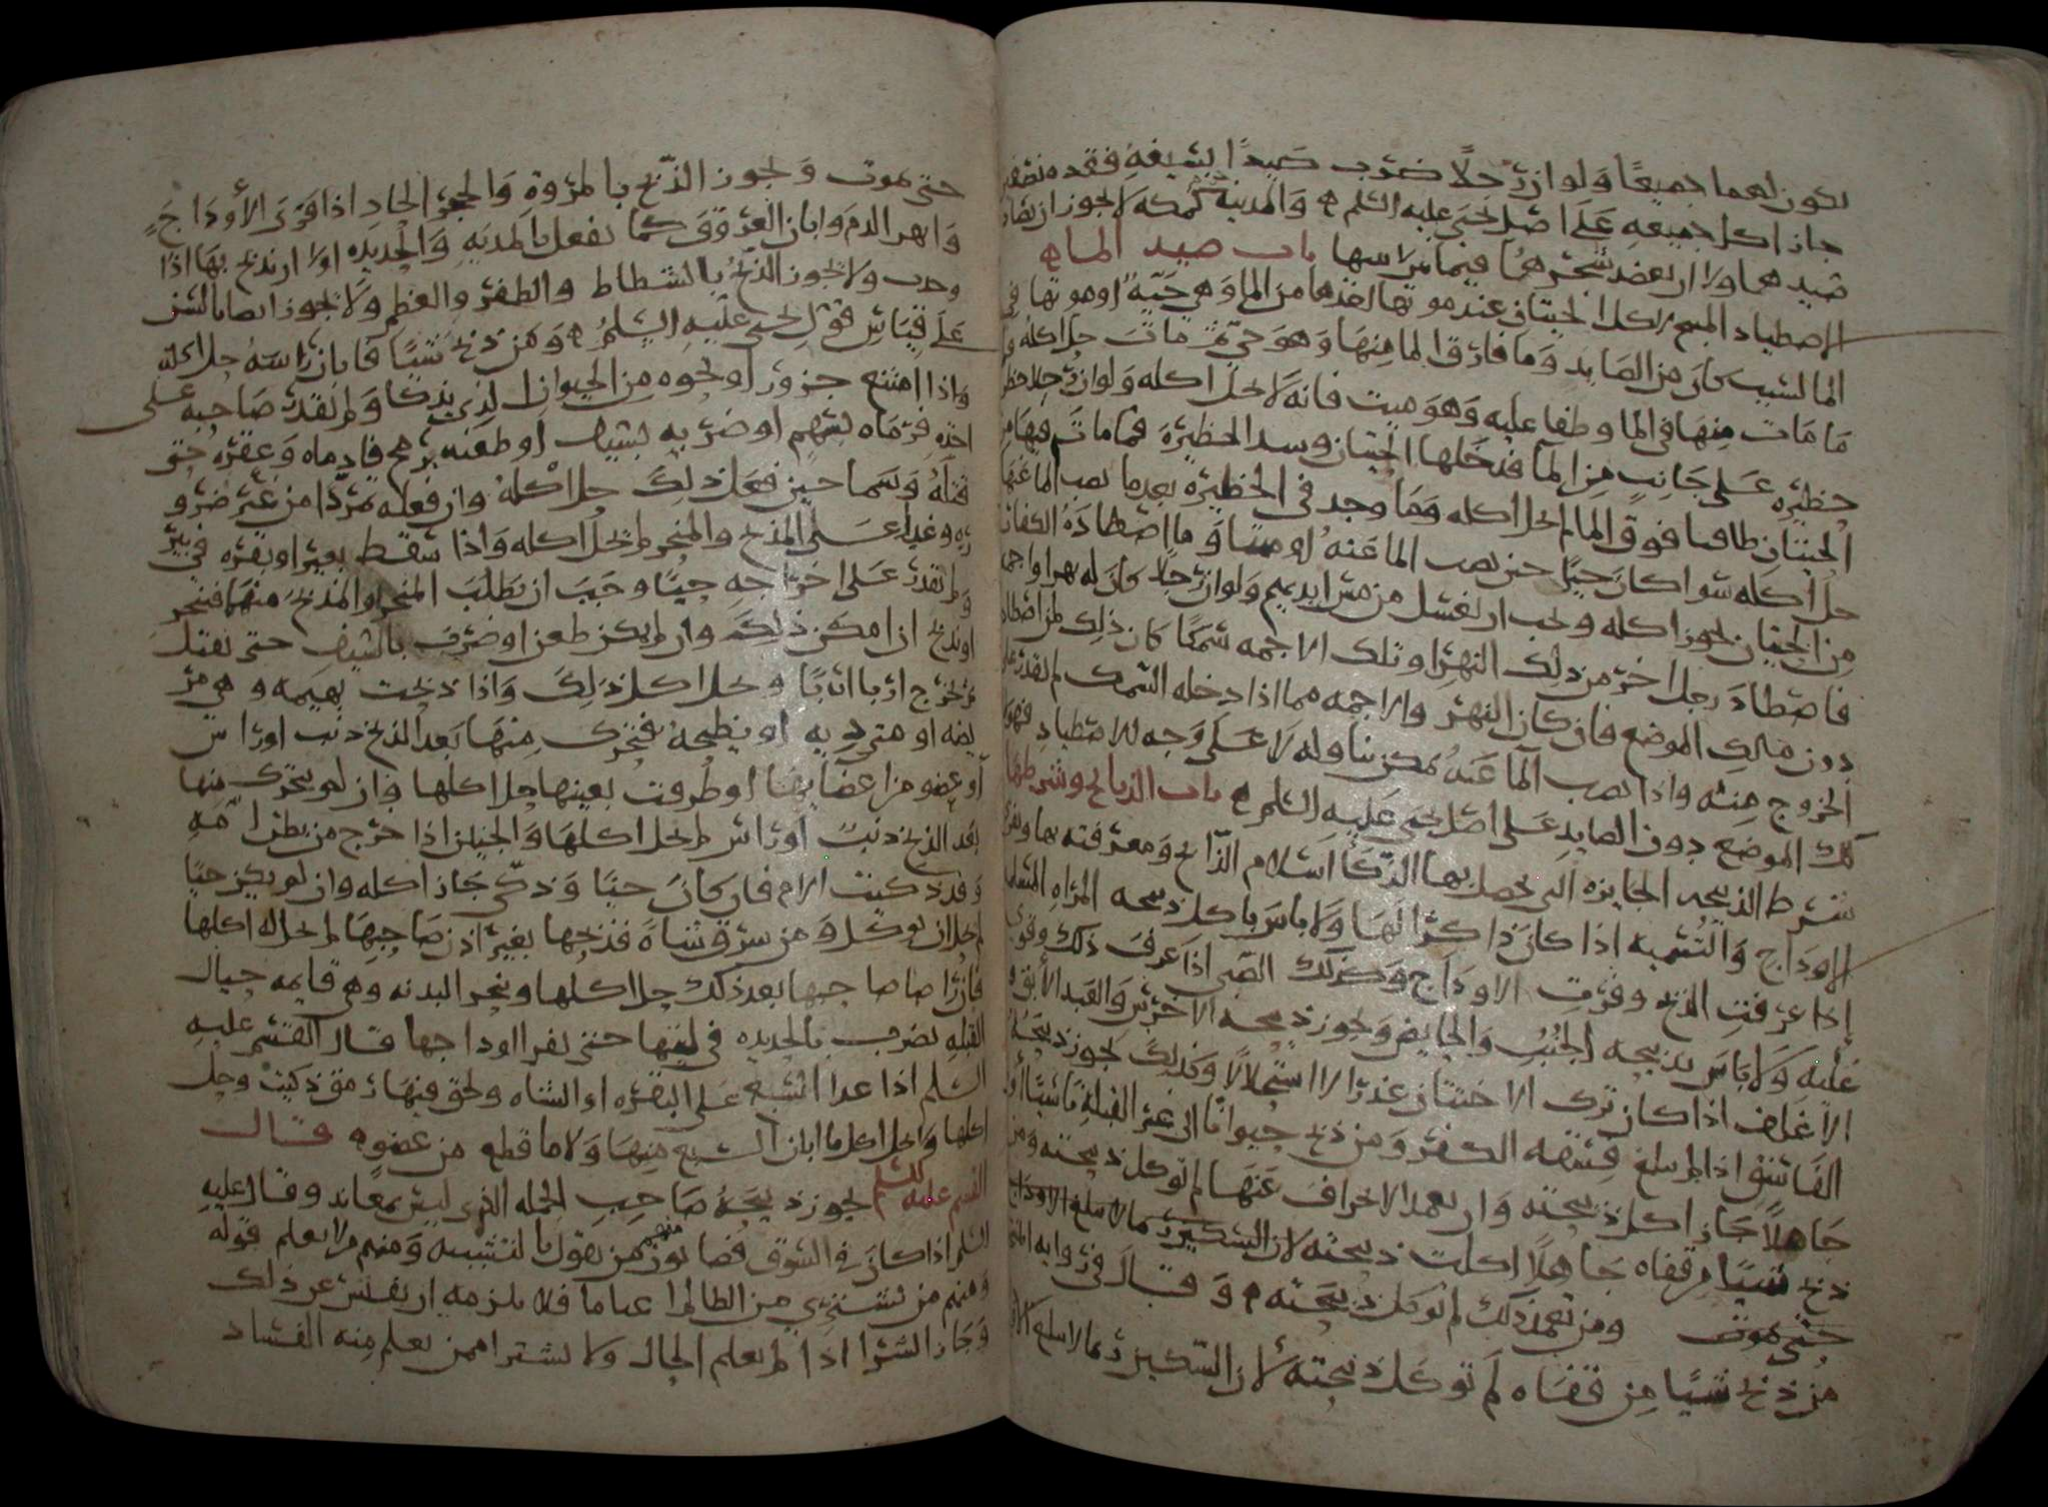 تكون لهما جميعًا وَلو ان رجلًا ضرب صَيدًا بسيفهِ فقده نصفين
جاز اكل جميعهِ عَلَى اصل يحيى عليه السلم ۞ والمدينة كمكه لا يجوز ان يصاد
صَيدهما ولا ان يعضد شجرهُما فيما بين لابتيها باب صيد الماء
الاصطياد المبيح لاكل الحيتان عند موتها اخذها من الماء وَهي حَيّهٌ او موتها في
الما لسبب كان من الصايد وَما فارق الما منهَا وَهوَ حَيّ ثمّ ماتَ حل اكله وَ
مَا مَات منهَا في الما وطفا عليه وَهوَ ميت فانه لا يحل اكله وَلو ان رجلا حظر
حظيرةً عَلى جَانبٍ مِن الما فدخلها الحيتان وسد الحظيرةَ فما مات فيها من
الحيتان طافيا فوق الما لم يحل اكله وَمَا وجد في الحظيرة بعد ما نصب الما عنها
حل اكله سوا كان حيّا حين نصب الما عَنهُ او ميتا وَما اصطادهُ الكفار
مِن الحيتان يجوز اكله ويجب ان يغسل من مس ايديهم وَلو ان رجلا كان له نهر او اجمه
فاصطادَ رجل اخر من ذلِك النهر او تلك الاجمه سَمكًا كان ذلِك لمن اصطاده
دون مالِك الموضع فان كان النهر والاجمه مما اذا دخله السّمك لم يقدر على
الخروج مِنه واذا نصب الما عَنهُ يمكن تناوله لا عَلَى وَجه الاصطياد فهو لما
لك الموضع دون الصايدِ عَلى اصل يحيى عَليهِ السّلم ۞ باب الذبايح وشرطها
شرط الذبيحه الجايزه التي يحصل بها الذّكاة اسلام الذّابح وَمعرفته بها وفرى
الاودَاج وَالتّسميه اذا كانَ ذاكرًا لهَا وَلا باسَ باكل ذبيحه المرَاه المسلمه
اذا عرفتِ الذبح وفرتِ الاودَاج وكذلك الصبى اذا عَرفَ ذلك وقوى
عَليهِ وَلا باسَ بذبيحه الجُنُبِ وَالحايض وَيجوز ذبيحه الاخرَس وَالعَبد الابق و
الاغلف اذا كان ترك الاختتان عذرًا لا استحلالًا وكذلكَ يجوز ذبيحَةُ
الفَاسق اذا لم يبلغ فسقه الكفر وَمن ذبح حيوانًا الى غير القبلةِ ناسيًا او
جَاهلًا جَاز اكل ذبيحته وَان تعمد الانحراف عَنهَا لم توكل ذبيحته وَمن
ذبح شيئا من قفاه جَاهلًا اكلت ذبيحته لان السكين ربما لا تبلغ الاوداج
حتى يموت ومن تعمد ذلك لم توكل ذبيحته ۞ وَقالَ في رواية
من ذبح شيئا مِن قفاه لَم توكل ذبيحته لان السّكين ربما لا تبلغ
حتى يموت وَيجوز الذّبح بالمروة وَالحجر الحاد اذا فَرَى الأودَاجَ
وَانهر الدم وابان العروق كما يفعل بالمديه وَالحديده اولا ان يذبح بهَا اذا
وجدت ولا يجوز الذبح بالشطاط والظفر والعظم وَلا يجوز ايضا بالسن
عَلَى قيَاسِ قول يحيى عليهِ السَّلمُ ۞ وَمَن ذبح شيئًا فابان راسَهُ حل اكله
وَاذا امتنع جزور او نحوه مِن الحيوان الذي يذكا ولم يقدر صَاحبه عَلى
اخذه فرمَاه بسَهم او ضربه بسيف او طعنه برمح فادماه وَعقره حتى
قتلَهُ وَسَما حين فعَل ذلكَ حل اكلهُ وان فعله تمرّدا من غير ضرو
رةٍ وغير اعسَار على المذبح والمنحر لم يحل اكله وَاذا سَقط بعير او بقره في بير
وَلم يقدر عَلى اخرَاجهِ حيّا وَجبَ ان يطلبَ المنحر او المذبح منهَا فينحر
او يذبح ان امكن ذلكَ وان لم يكن طعن او ضرب بالسيف حتى يقتل
ثم يخرج اربا اربًا وَيحل اكل ذلكَ وَاذا ذبحت بهيمه وهي مر
يضه او متردّيه او نطيحهٌ فتحرك منهَا بَعد الذبح ذنب او راس
او عضو من اعضايها او طرفت بعينها حل اكلها وَان لم يتحرك منها
بعد الذبح ذنبٌ او رَاس لم يحل اكلهَا وَالجنين اذا خرج من بطن امّهِ
وَقد ذكيت الام فان كان حيّا وَذكّى جَاز اكله وان لم يكن حيّا
لم يحل ان يوكل وَمن سَرق شاةً فذبحها بغير اذن صَاحبهَا لم يحل له اكلها
فان رَاضا صاحبها بعد ذلك حل اكلها وينحر البدنه وهي قايمه حيال
القبلهِ يضرب بالحديده في لبتها حتى يفرا اوداجها قال القسم عليهِ
السّلم اذا عدا السّبع عَلى البقره او الشاه ولحق فيهَا رمق ذكيت وحل
اكلها وَلا يحل اكل ما ابان السبع منهَا وَلا ما قطع من عضوه قال
القسم عليه السلم يجوز ذبيحَةُ صَاحِبِ الجمله الذي ليسَ بمعاند وقال عليهِ
السّلم اذا كانَ في السّوق قصابون منهم من يقول بالتشبيه وَمنهم من لا يعلم قوله
وَمنهم من يشتري من الظالم اغناما فلا يلزمه ان يفتش عن ذلك
وَجَاز الشرا اذا لم يعلم الحال ولا يشترا ممن يعلم مِنه الفسَاد